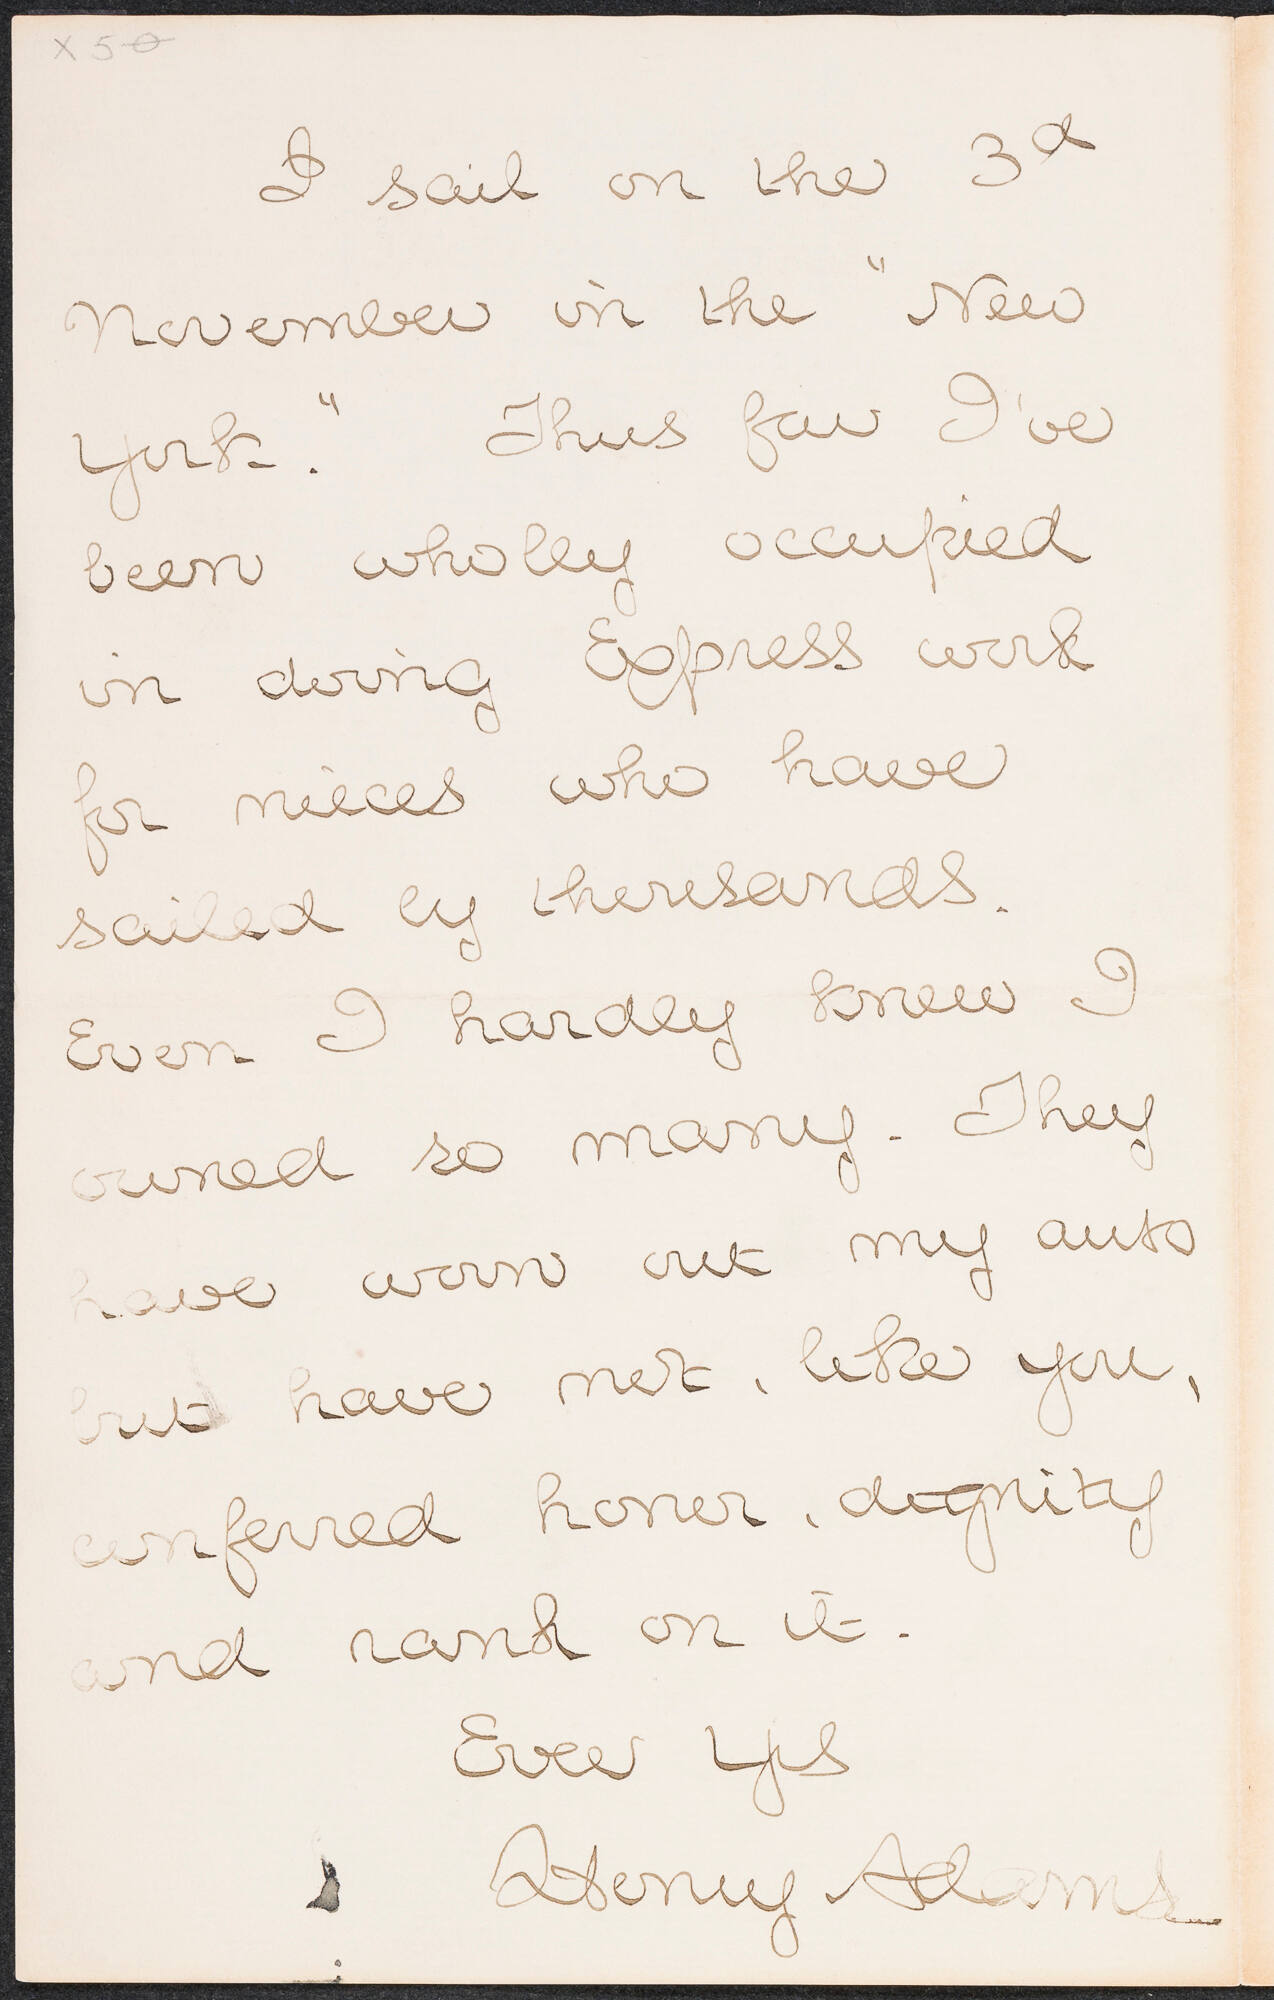 x 50
I sail on the 3d
November in the "New
York." Thus far I've
been wholly occupied
in doing Express work
for nieces who have
sailed by thousands.
Even I hardly knew I
owned so many. They
have worn out my auto
but have not, like you,
conferred honor, dignity
and rank on it.
Ever Yrs
Henry Adams